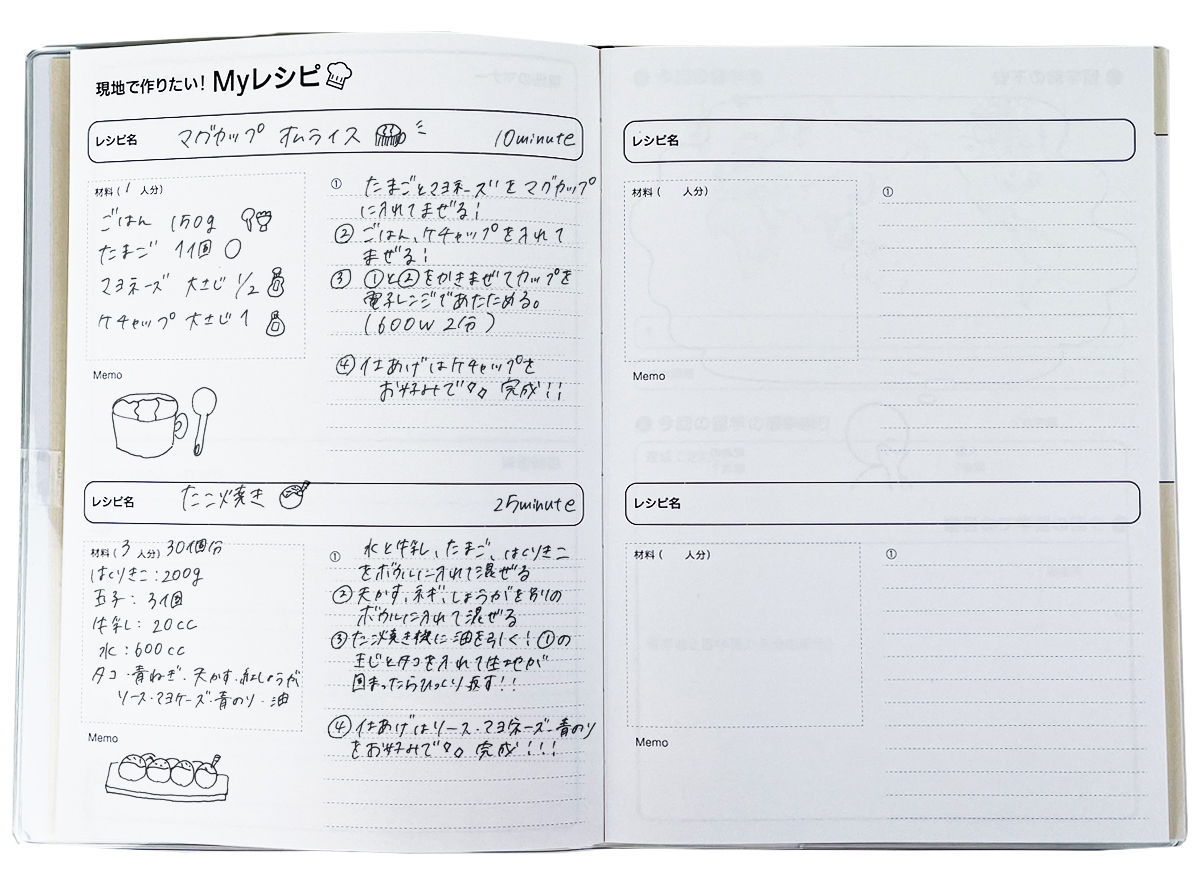 現地で作りたい！ Myレシピ
レシピ名 マグカップ オムライス 10minute
材料（1 人分）
ごはん 150g
たまご 1個
マヨネーズ 大さじ 1/2
ケチャップ 大さじ 1
Memo
① たまごとマヨネーズをマグカップ
に入れてまぜる！
② ごはん、ケチャップを入れて
まぜる！
③ ①と②をかきまぜてカップを
電子レンジであたためる。
（600W 2分）
④ 仕あげはケチャップを
お好みで。完成！！
レシピ名 たこ焼き 25minute
材料（3 人分）30個分
はくりきこ：200g
玉子：3個
牛乳：20cc
水：600cc
タコ・青ねぎ・天かす・紅しょうが
ソース・マヨネーズ・青のり・油
Memo
① 水と牛乳、たまご、はくりきこ
をボウルに入れて混ぜる
② 天かす、ネギ、しょうがを別の
ボウルに入れて混ぜる
③ たこ焼き機に油を引く！①の
きじとタコを入れて生地が
固まったらひっくり返す！！
④ 仕あげはソース・マヨネーズ・青のり
をお好みで。完成！！！
レシピ名
材料（ 人分）
①
Memo
レシピ名
材料（ 人分）
①
Memo